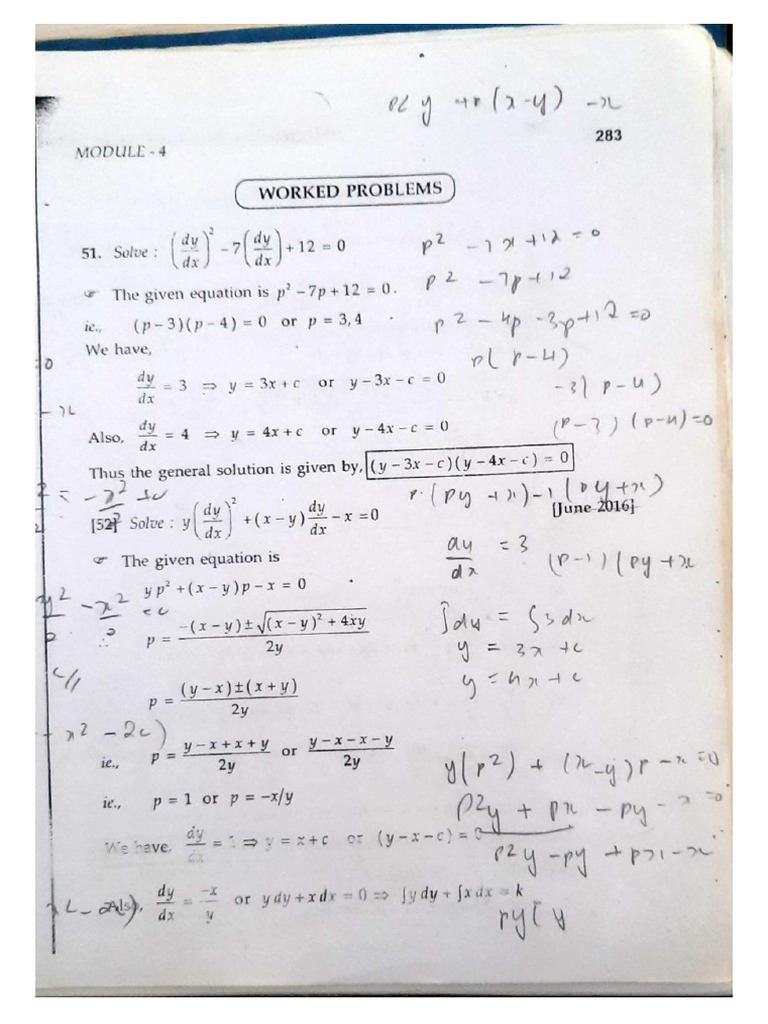 p2 y + p (x-y) -x
283
MODULE - 4
WORKED PROBLEMS
51. Solve : (dy/dx)² - 7(dy/dx) + 12 = 0
p² - 7x + 12 = 0
☞ The given equation is p² - 7p + 12 = 0.
p² - 7p + 12
ie., (p - 3)(p - 4) = 0 or p = 3, 4
p² - 4p - 3p + 12 = 0
We have,
p( p-4)
dy/dx = 3 ⇒ y = 3x + c or y - 3x - c = 0
-3( p-4)
Also, dy/dx = 4 ⇒ y = 4x + c or y - 4x - c = 0
(p-3) (p-4) = 0
Thus the general solution is given by, (y - 3x - c)(y - 4x - c) = 0
p (py + x) - 1 (py + x)
[52] Solve : y(dy/dx)² + (x - y) dy/dx - x = 0
[June 2016]
☞ The given equation is
dy/dx = 3
(p-1) (py + x
y p² + (x - y) p - x = 0
y² - x²
p = (-(x - y) ± √((x - y)² + 4xy))/2y
∫dy = ∫3dx
y = 3x + c
p = ((y - x) ± (x + y))/2y
y = 4x + c
x² - 2c)
ie., p = (y - x + x + y)/2y or (y - x - x - y)/2y
y(p²) + (x-y)p - x = 0
ie., p = 1 or p = -x/y
p2y + px - py - x = 0
We have, dy/dx = 1 ⇒ y = x + c or (y - x - c) = 0
p2y - py + px - x
Also, dy/dx = -x/y or y dy + x dx = 0 ⇒ ∫y dy + ∫x dx = k
py[ y